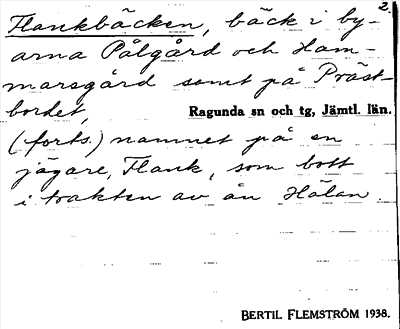 2.
Flankbäcken, bäck i by-
arna Pålgård och Ham-
marsgård samt på Präst-
bordet, Ragunda sn och tg, Jämtl. län.
(forts.) namnet på en
jägare, Flank, som bott
i trakten av ån Hälan.
BERTIL FLEMSTRÖM 1938.